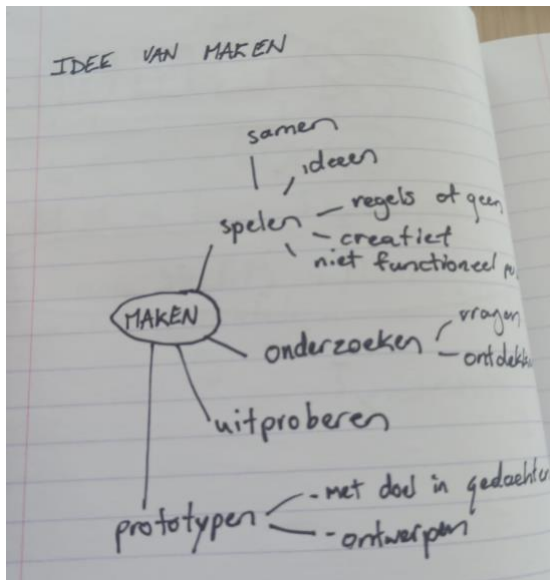 IDEE VAN MAKEN
samen
ideeen
spelen
regels of geen
creatief
niet functioneel
MAKEN
onderzoeken
vragen
uitproberen
- met doel in
prototypen
- ontwerpen